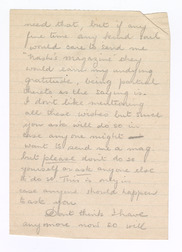 need that, but if any
fine time any kind
would care to send me
"Nash's Magazine they
would earn my undying
gratitude, being
as the saying is.
I don't like mentioning
all these wishes but since
you ask will do so in
case anyone might
want to send me a mag
but please don't do so
yourself or ask anyone else
to do so. This is only in
case anyone should happen
to ask you
Don't think I have
anymore now so will